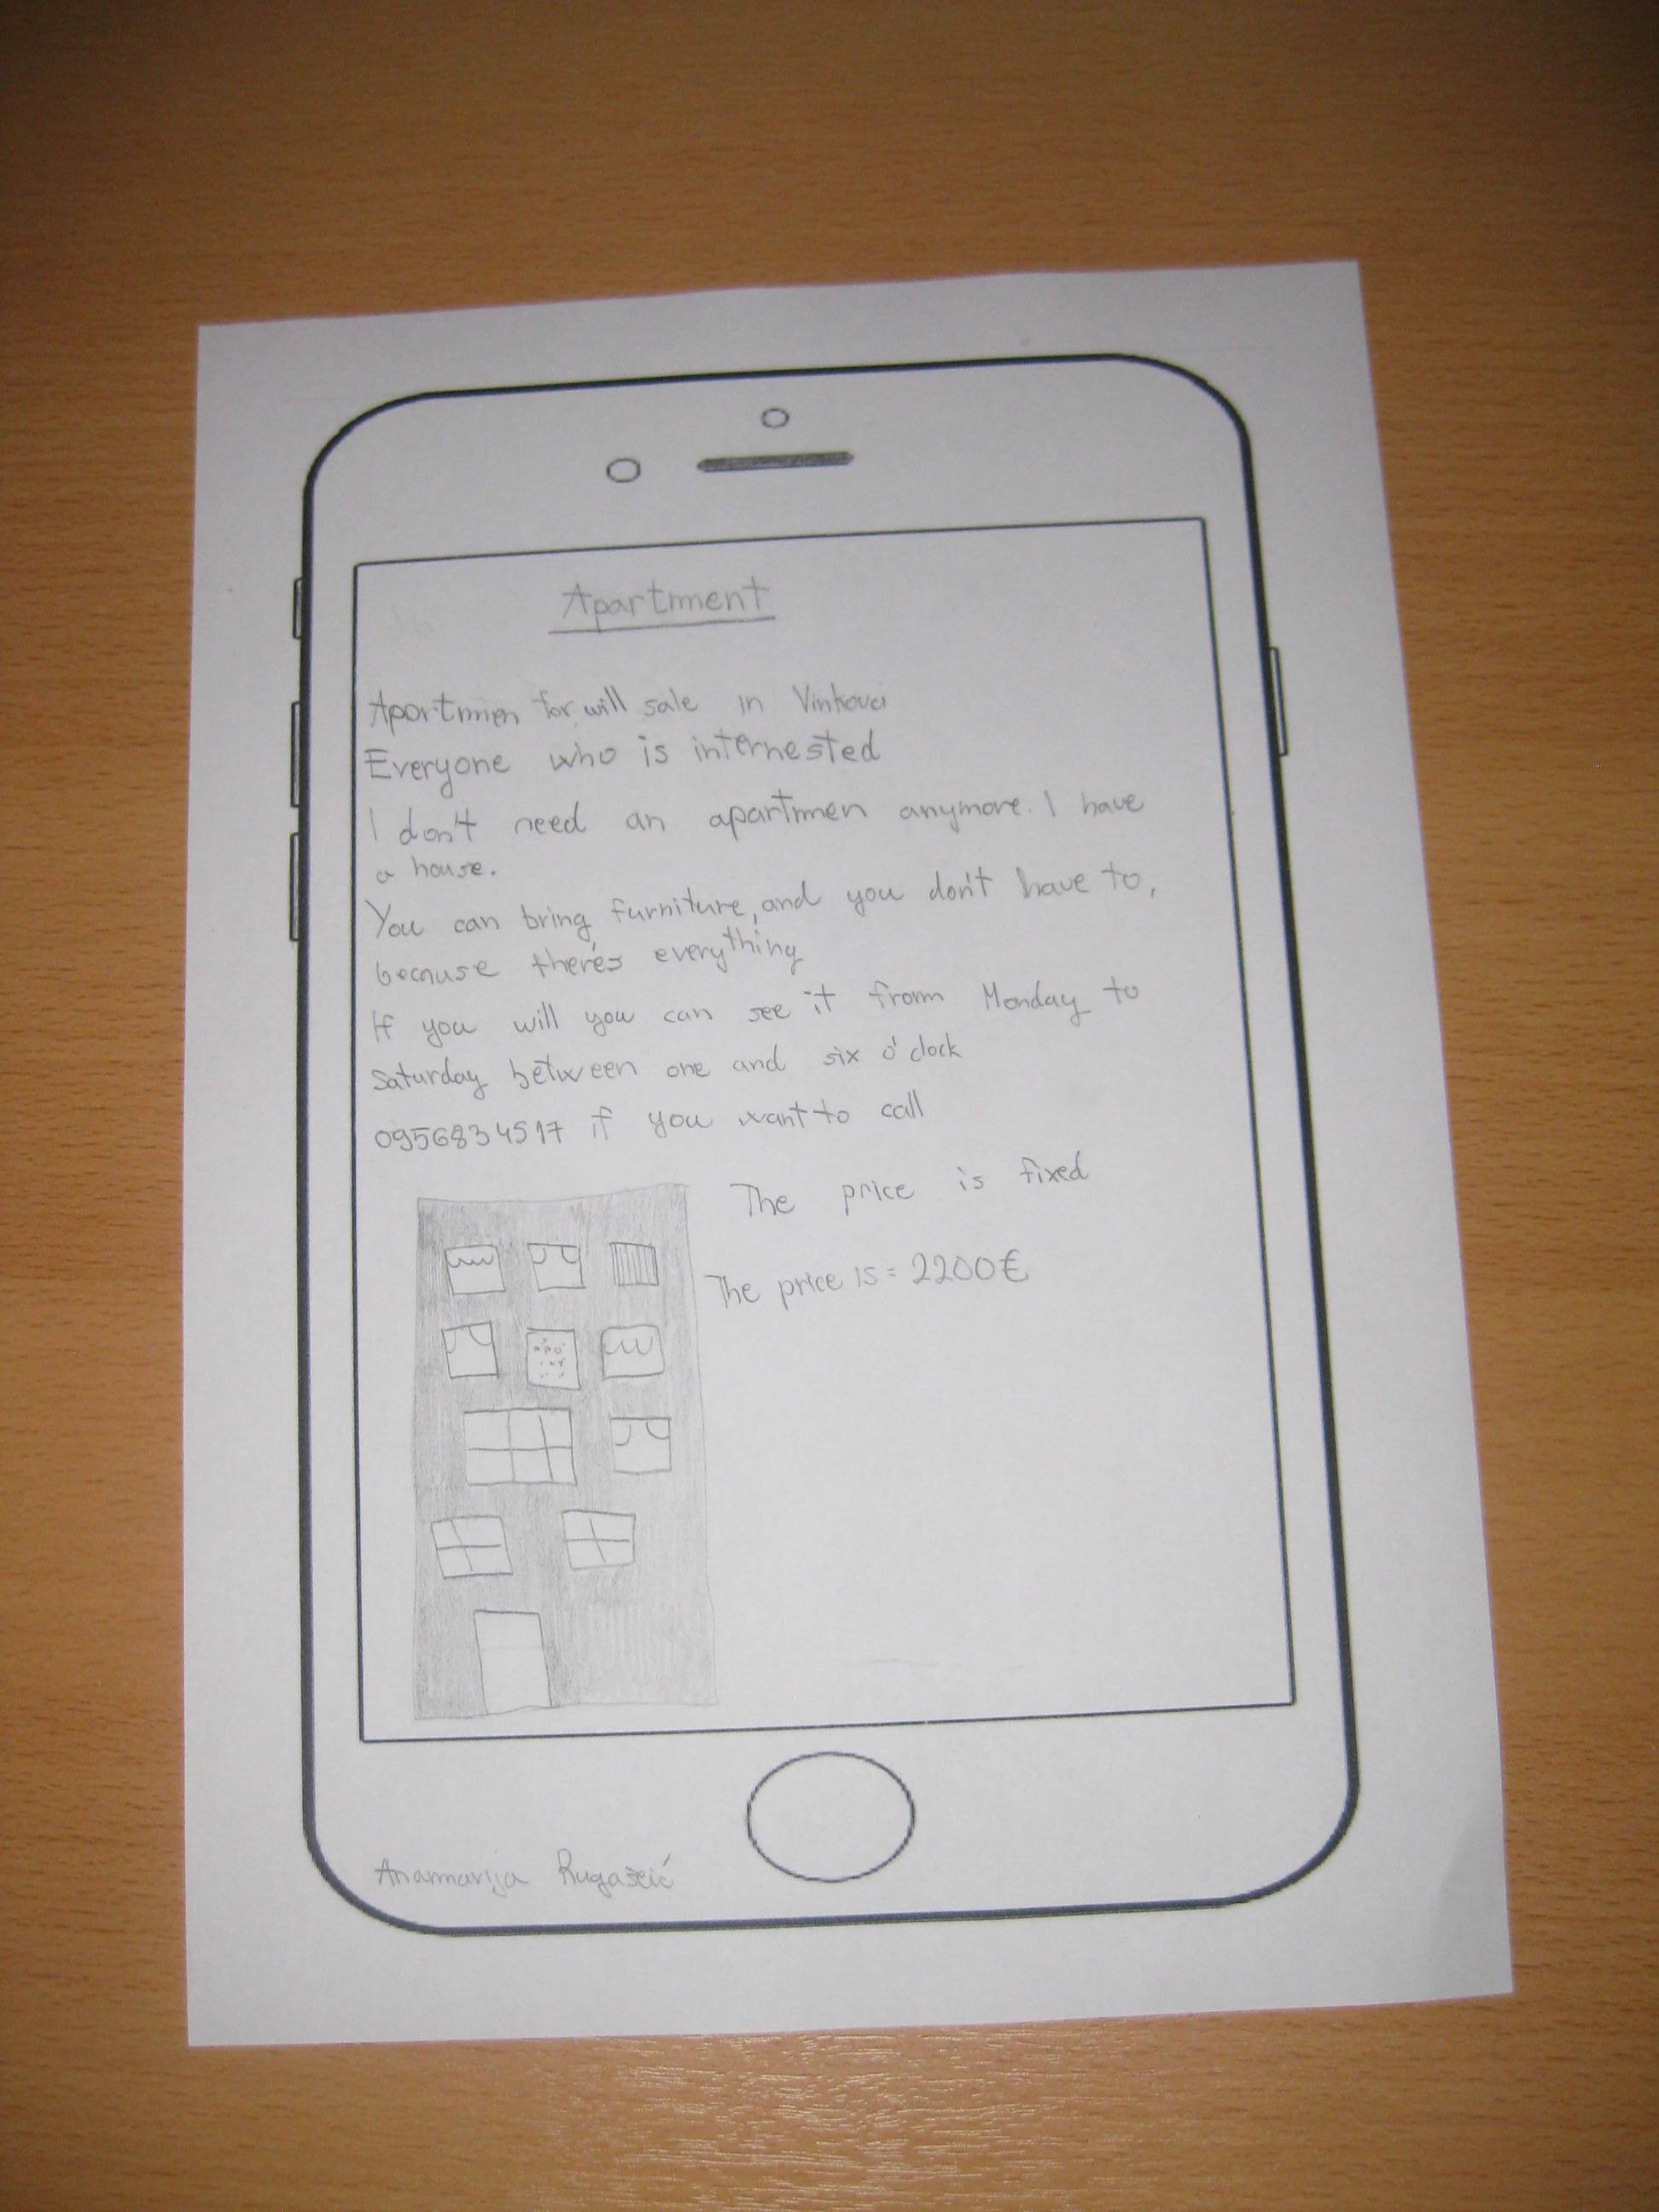 Apartment
Apartmen for will sale in Vinkovci
Everyone who is internested
I don't need an apartmen anymore. I have
a house.
You can bring furniture, and you don't have to,
because there's everything
If you will you can see it from Monday to
Saturday between one and six o'clock
0956834517 if you want to call
The price is fixed
The price is = 2200€
Anamarija